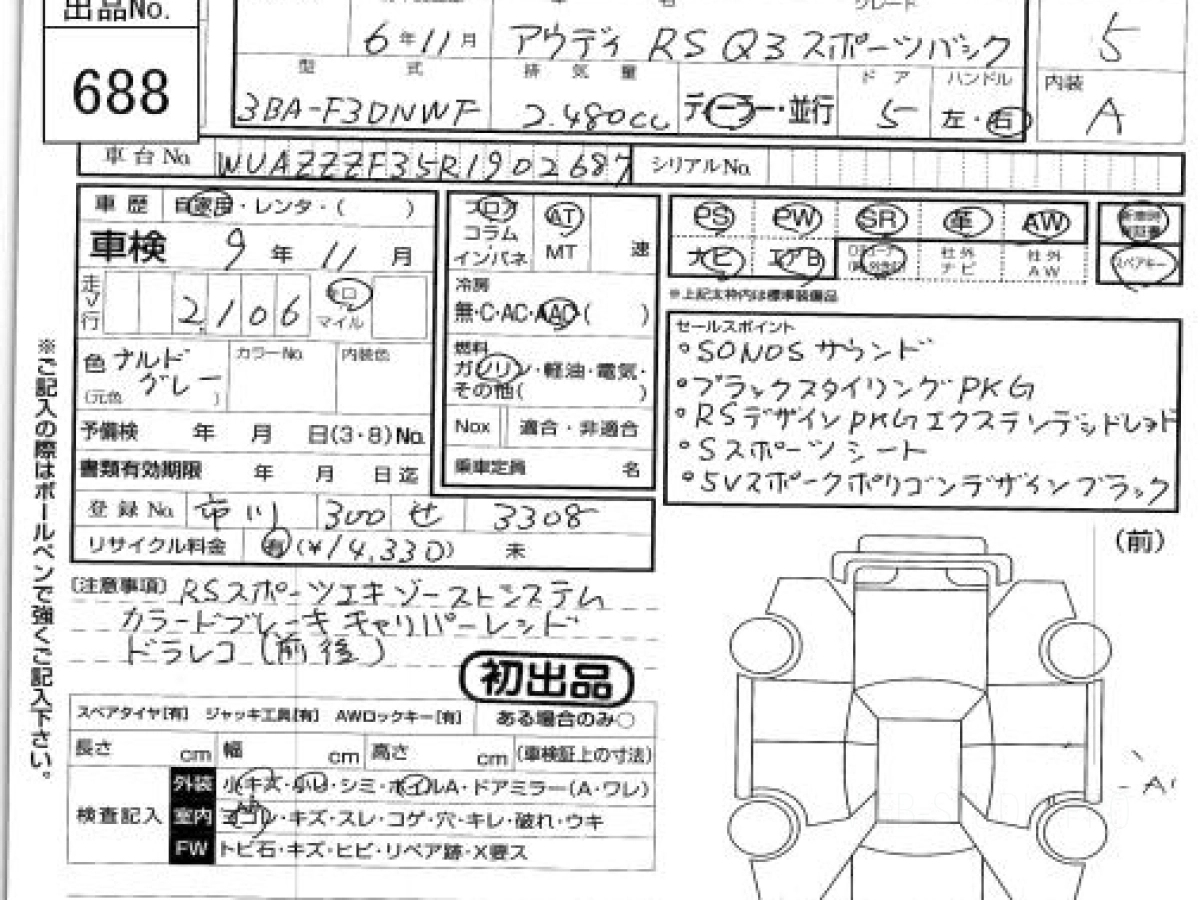 出品No.
688
6年11月 アウディ RS Q3 スポーツバック 5
型式 排気量 ドア ハンドル 内装
3BA-F3DNWF 2.480cc ディーラー・並行 5 左・右 A
車台No. WUAZZZF35R1902687 シリアルNo.
車歴 自家用・レンタ・( )
車検 9年 11月
走行 2,106 キロ マイル
色 ナルドグレー カラーNo. 内装色
(元色 )
予備検 年 月 日(3・8)No.
書類有効期限 年 月 日迄
登録No. 市川 300 せ 3308
リサイクル料金 有(¥14,330) 未
フロア
コラム
インパネ
AT
MT
速
冷房
無・C・AC・AAC( )
燃料
ガソリン・軽油・電気・
その他( )
Nox 適合・非適合
乗車定員 名
PS PW SR 革 AW
ナビ エアB 社外ナビ 社外AW
スペアキー
※上記太枠内は標準装備品
セールスポイント
°SONOSサウンド
°ブラックスタイリングPKG
°RSデザインPKGエクステンデッドレッド
°Sスポーツシート
°5Vスポークポリゴンデザインブラック
(前)
(注意事項) RSスポーツエキゾーストシステム
カラードブレーキキャリパーレッド
ドラレコ(前後)
初出品
スペアタイヤ[有] ジャッキ工具[有] AWロックキー[有] ある場合のみ○
長さ cm 幅 cm 高さ cm (車検証上の寸法)
検査記入
外装 小キズ・小凹・シミ・ホイルA・ドアミラー(A・ワレ)
室内 ヨゴレ・キズ・スレ・コゲ・穴・キレ・破れ・ウキ
FW トビ石・キズ・ヒビ・リペア跡・X要ス
A1
※ご記入の際はボールペンで強くご記入下さい。